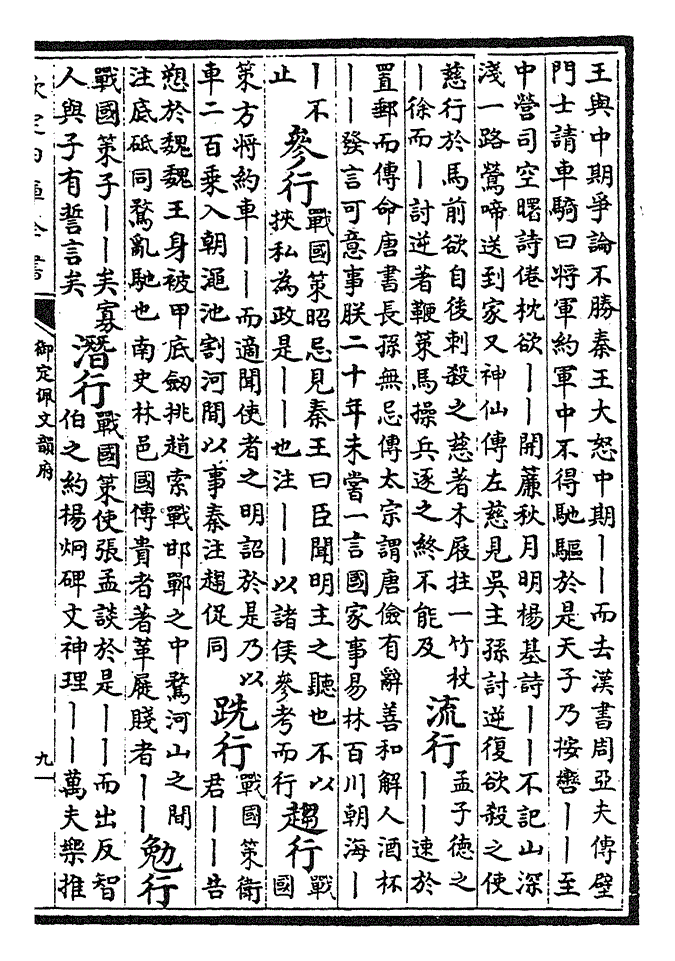 王與中期爭論不勝秦王大怒中期丨丨而去漢書周亞夫傳壁
門士請車騎曰將軍約軍中不得馳驅於是天子乃按轡丨丨至
中營司空曙詩倦枕欲丨丨開簾秋月明楊基詩丨丨不記山深
淺一路鶯啼送到家又神仙傳左慈見吳主孫討逆復欲殺之使
慈行於馬前欲自後刺殺之慈著木屐拄一竹杖
丨徐而丨討逆著鞭策馬操兵逐之終不能及
流行
孟子德之
丨丨速於
置郵而傳命唐書長孫無忌傳太宗謂唐儉有辭善和解人酒杯
丨丨發言可意事朕二十年未嘗一言國家事易林百川朝海丨
丨不
止
參行
戰國策昭忌見秦王曰臣聞明主之聽也不以
挾私為政是丨丨也注丨丨以諸侯參考而行
趨行
戰
國
策方將約車丨丨而適聞使者之明詔於是乃以
車二百乘入朝澠池割河間以事秦注趨促同
跣行
戰國策衛
君丨丨告
愬於魏魏王身被甲底劒挑趙索戰邯鄲之中騖河山之間
注底砥同騖亂馳也南史林邑國傳貴者著革屣賤者丨丨
勉行
戰國策子丨丨矣寡
人與子有誓言矣
潛行
戰國策使張孟談於是丨丨而出反智
伯之約楊炯碑文神理丨丨萬夫樂推
欽定四庫全書
御定佩文韻府
九一